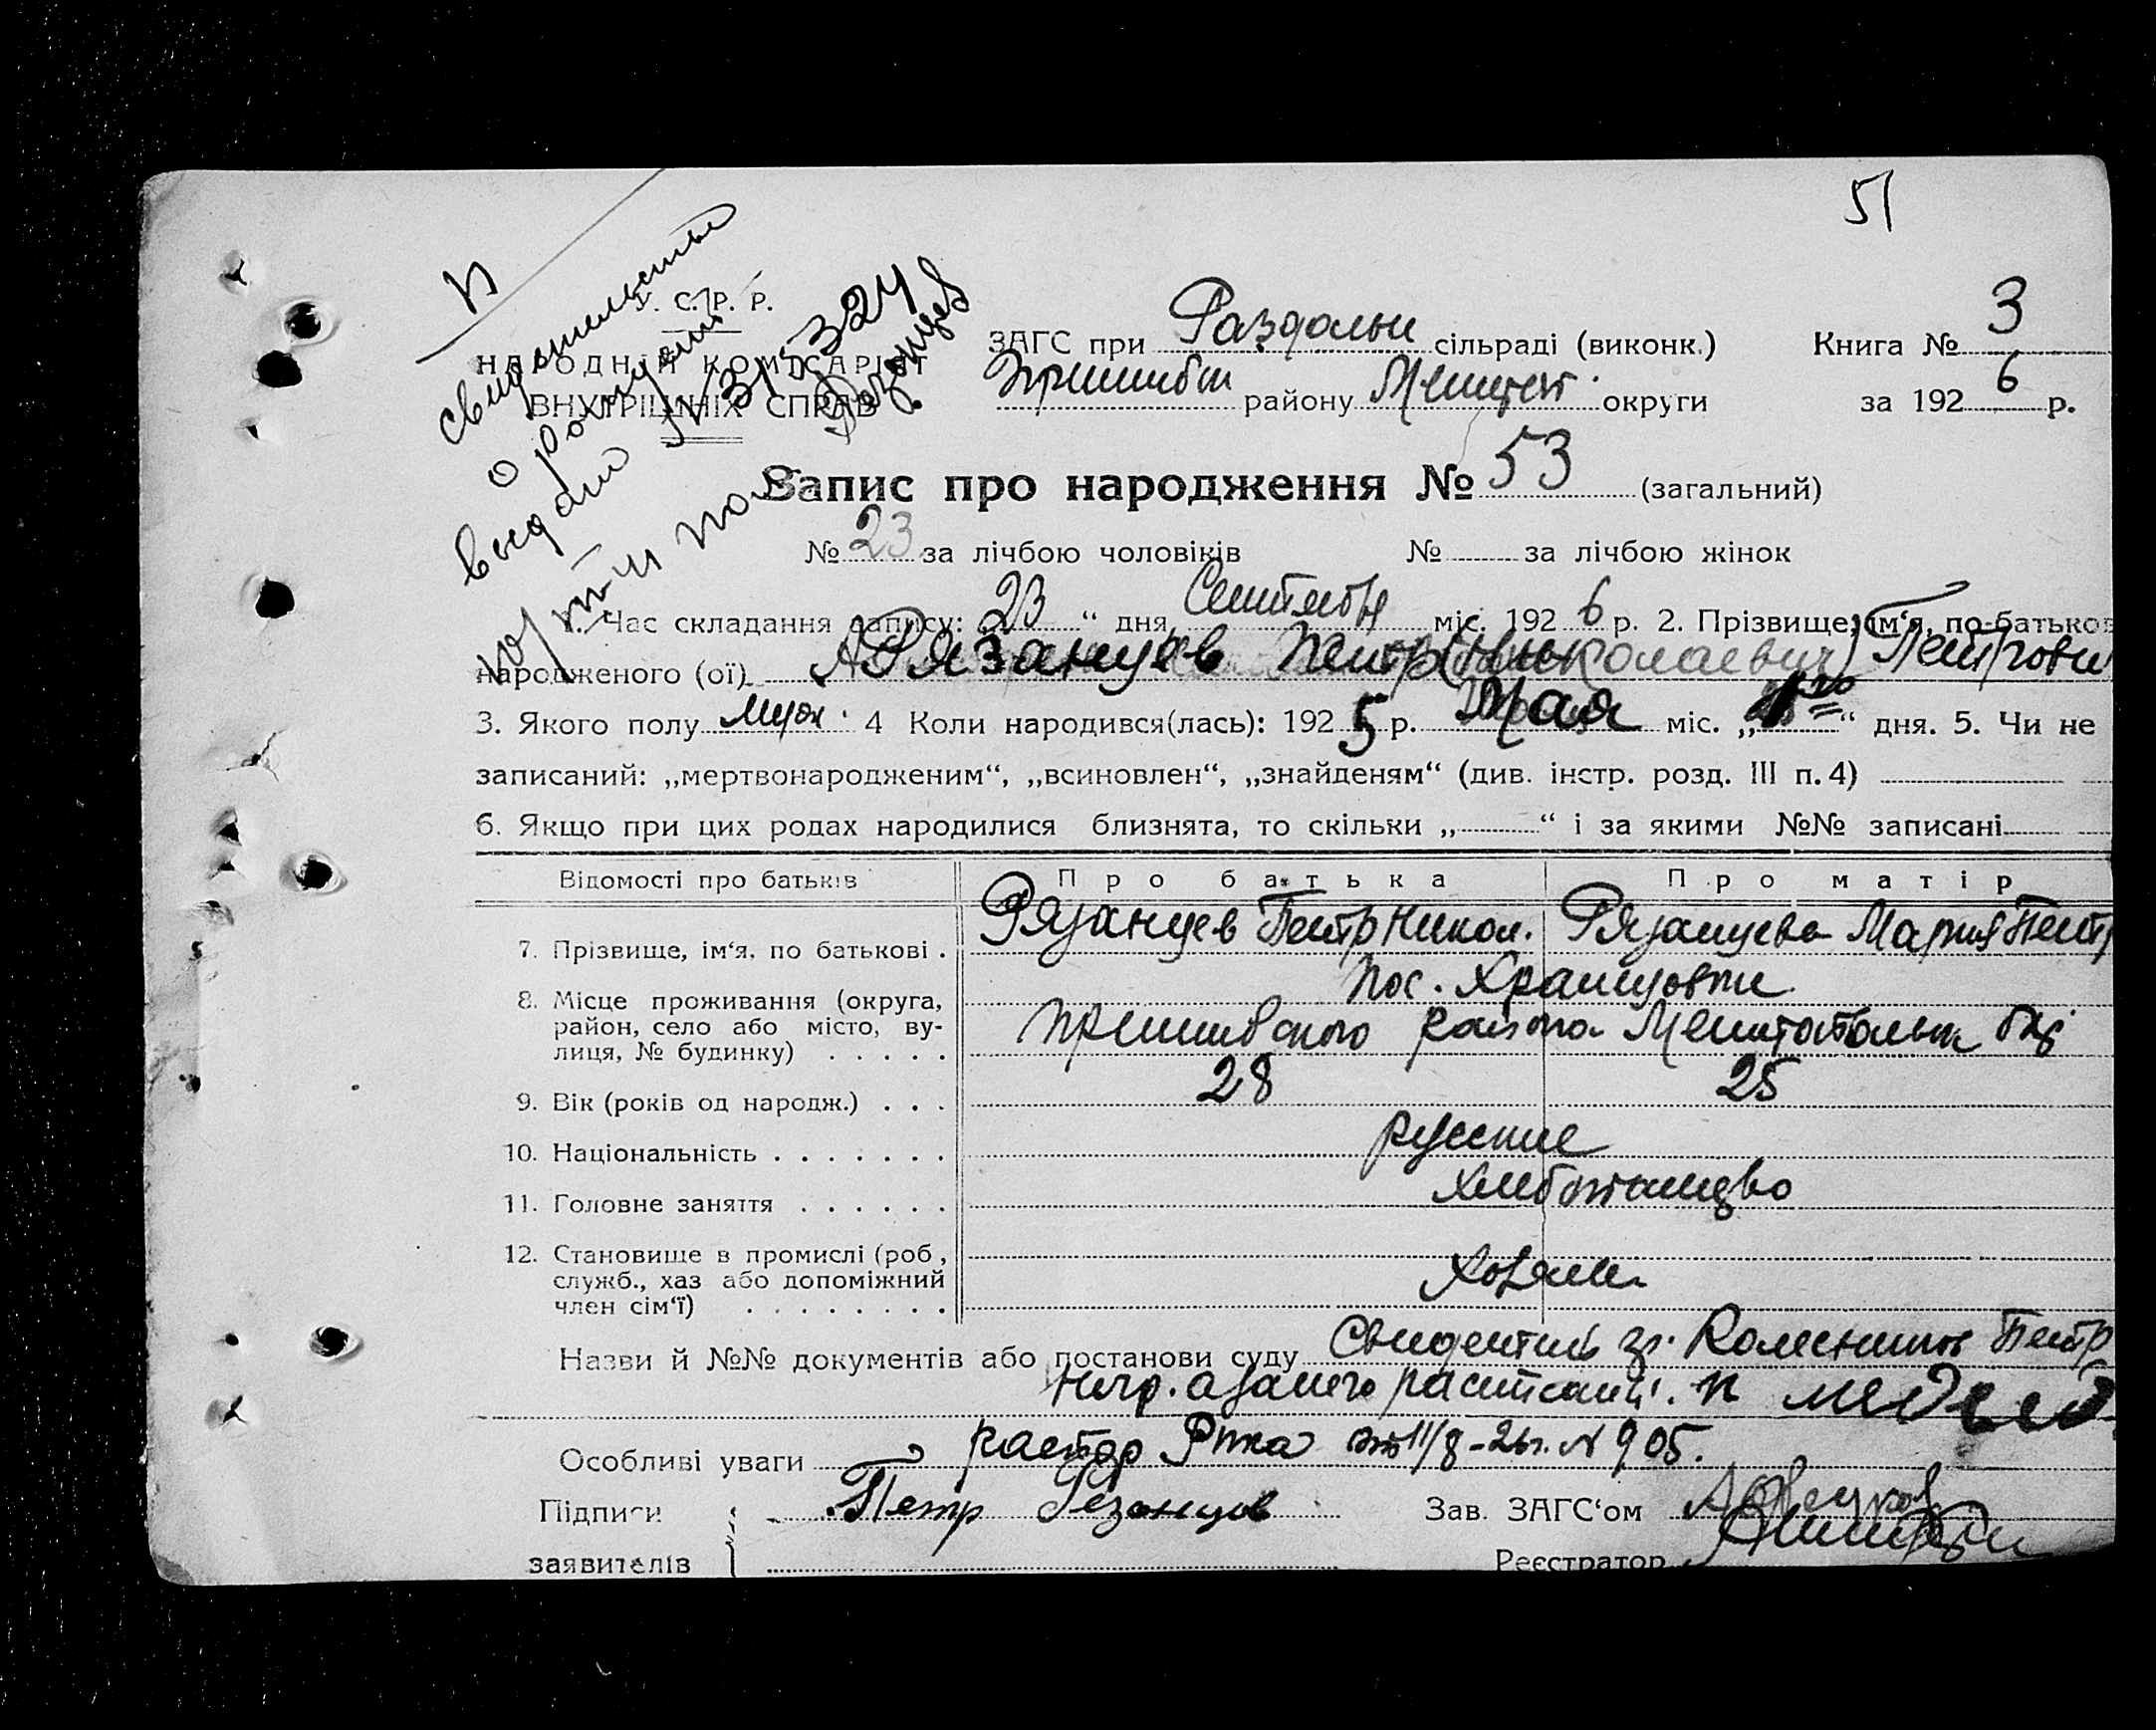 51
П
свидетельство
о рожден
выдано № 315324
Рязанцев
У. С. Р. Р.
НАРОДНІЙ КОМІСАРІЯТ
ВНУТРІШНІХ СПРАВ
ЗАГС при Раздольн сільраді (виконк.) Книга № 3
Пришибск району Мелитоп. округи за 1926 р.
Запис про народження № 53 (загальний)
№ 23 за лічбою чоловіків № за лічбою жінок
1. Час складання запису: „23“ дня Сентября міс. 1926 р. 2. Прізвище, ім‘я, по-батькові
народженого (ої) Рязанцев Петр (Николаевич) Петрови
3. Якого полу муж. 4 Коли народився(лась): 1925 р. Мая міс. „1го“ дня. 5. Чи не
записаний: „мертвонародженим“, „всиновлен“, „знайденям“ (див. інстр. розд. III п. 4)
6. Якщо при цих родах народилися близнята, то скільки „ “ і за якими №№ записані
Відомості про батьків Про батька Про матір
7. Прізвище, ім‘я, по батькові . Рязанцев Петр Никол. Рязанцева Мария Петр
8. Місце проживання (округа, район, село або місто, вулиця, № будинку) . . . . .
пос.
Пришибского района Мелитопольск
9. Вік (років од народж.) . . . 28 25
10. Національність . . . . . . . русские
11. Головне заняття . . . . . . хлебопашцво
12. Становище в промислі (роб., служб., хаз або допоміжний член сім‘ї) . . . . . . . .
Хозяин
Назви й №№ документів або постанови суду Свидетель гр. Колесников Петр
Особливі уваги Рика от 11/8-26г. № 905.
Підписи Петр Резонцов Зав. ЗАГС‘ом
заявителів Реєстратор